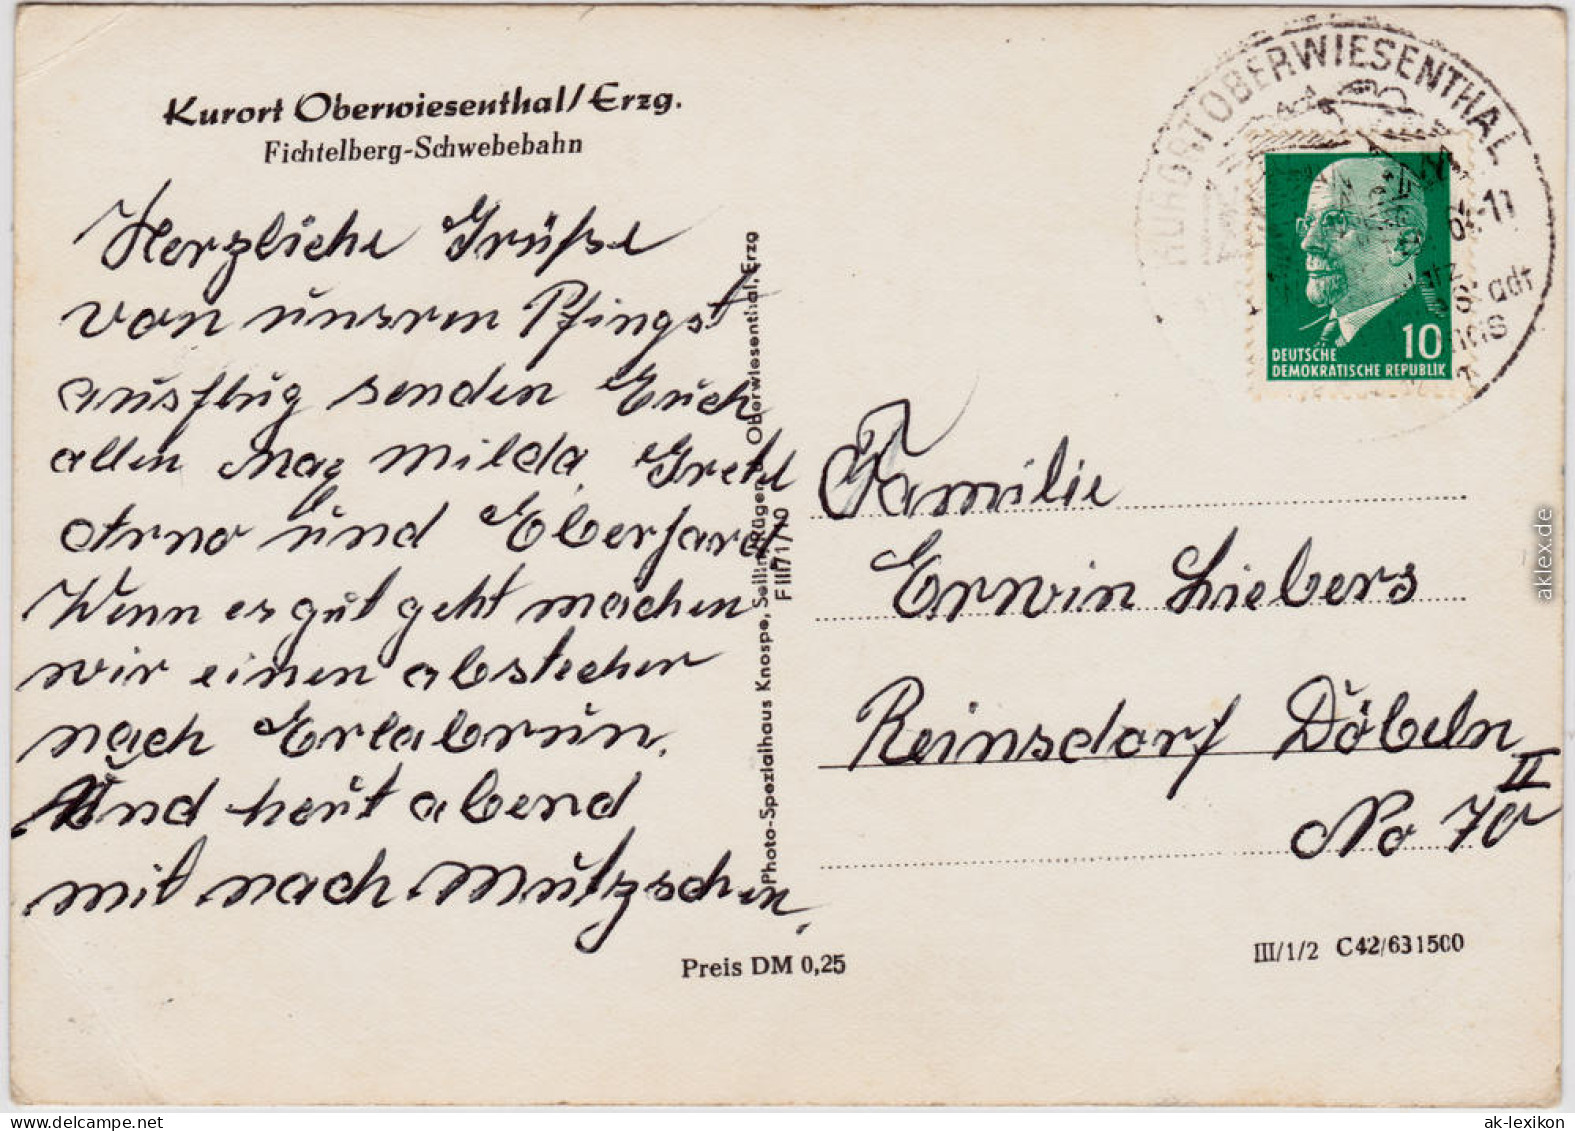 Kurort Oberwiesenthal/Erzg.
Fichtelberg-Schwebebahn
Herzliche Grüße
von unsren Pfingst
ausflug senden Euch
allen Max Milda, Gretel
Arno und Eberhard
Wenn es gut geht machen
wir einen abstecher
nach Erlabrun.
Und heut abend
mit nach Mutzschen.
Photo-Spezialhaus Knospe, Sellin/Rügen u. Oberwiesenthal, Erzg
F III/71/10
Preis DM 0,25
KURORT OBERWIESENTHAL
64-11
DEUTSCHE
DEMOKRATISCHE REPUBLIK
10
Familie
Erwin Liebers
Reinsdorf Döbeln
II
No 70
III/1/2 C42/631500
aklex.de
www.delcampe.net
ak-lexikon